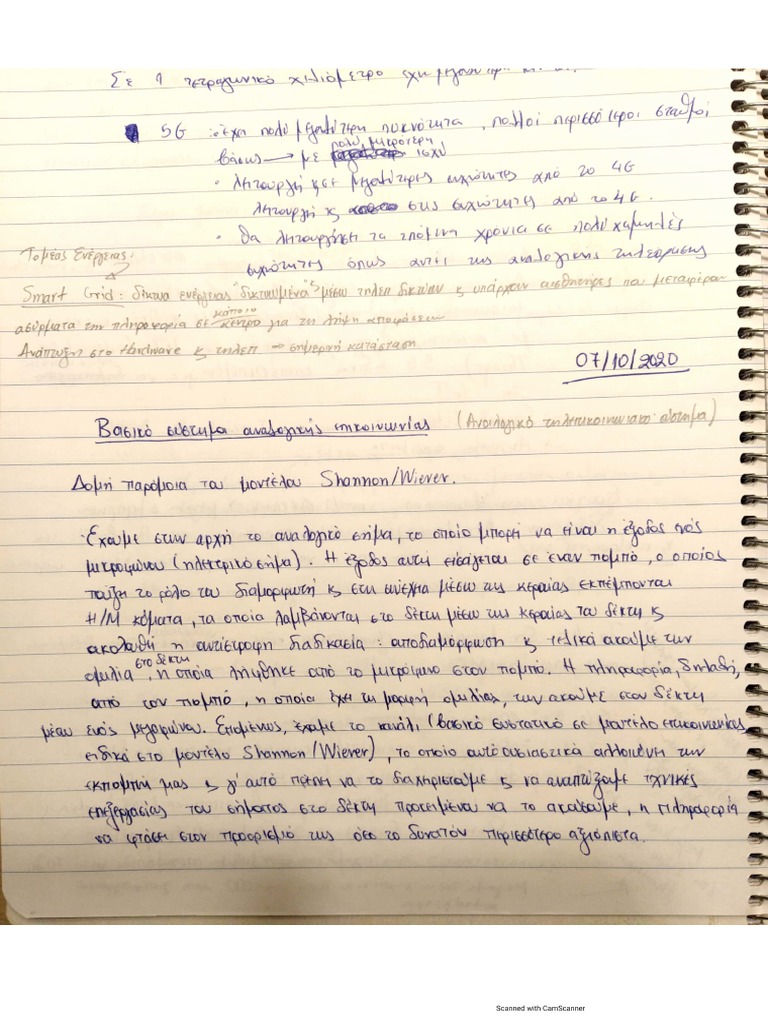 Σε 1 τετραγωνικό χιλιόμετρο έχει μεγαλύτερη
5G : έχει πολύ μεγαλύτερη πυκνότητα, πολλοί περισσότεροι σταθμοί
βάσης → με πολύ μικρότερη ισχύ
• λειτουργεί κ σε μεγαλύτερες συχνότητες από το 4G
λειτουργεί κ στις συχνότητες από το 4G.
• θα λειτουργήσει τα επόμενα χρόνια σε πολύ χαμηλές
συχνότητες όπως αυτή της αναλογικής τηλεόρασης
Τομέας Ενέργειας:
Smart Grid: δίκτυα ενέργειας "δικτυωμένα" μέσω τηλεπ δικτύων κ υπάρχουν αισθητήρες που μεταφέρουν
ασύρματα την πληροφορία σε κάποιο κέντρο για τη λήψη αποφάσεων
Ανάπτυξη στο Hardware κ τηλεπ ⇒ σημερινή κατάσταση
07/10/2020
Βασικό σύστημα αναλογικής επικοινωνίας (Αναλογικό τηλεπικοινωνιακό σύστημα)
Δομή παρόμοια του μοντέλου Shannon/Wiever.
Έχουμε στην αρχή το αναλογικό σήμα, το οποίο μπορεί να είναι η έξοδος ενός
μικροφώνου (ηλεκτρικό σήμα). Η έξοδος αυτή εισάγεται σε έναν πομπό, ο οποίος
παίζει το ρόλο του διαμορφωτή κ στη συνέχεια μέσω της κεραίας εκπέμπονται
Η/Μ κύματα, τα οποία λαμβάνονται στο δέκτη μέσω της κεραίας του δέκτη κ
ακολουθεί η αντίστροφη διαδικασία: αποδιαμόρφωση κ τελικά ακούμε την
ομιλία στο δέκτη, η οποία λήφθηκε από το μικρόφωνο στον πομπό. Η πληροφορία, δηλαδή,
από τον πομπό, η οποία έχει τη μορφή ομιλίας, την ακούμε στον δέκτη
μέσω ενός μεγαφώνου. Επομένως, έχουμε το κανάλι (βασικό συστατικό σε μοντέλο επικοινωνίας
ειδικά στο μοντέλο Shannon/Wiever), το οποίο αυτό ουσιαστικά αλλοιώνει την
εκπομπή μας κ γι' αυτό πρέπει να το διαχειριστούμε κ να αναπτύξουμε τεχνικές
επεξεργασίας του σήματος στο δέκτη προκειμένου να το ακούσουμε, η πληροφορία
να φτάσει στον προορισμό της όσο το δυνατόν περισσότερο αξιόπιστα.
Scanned with CamScanner